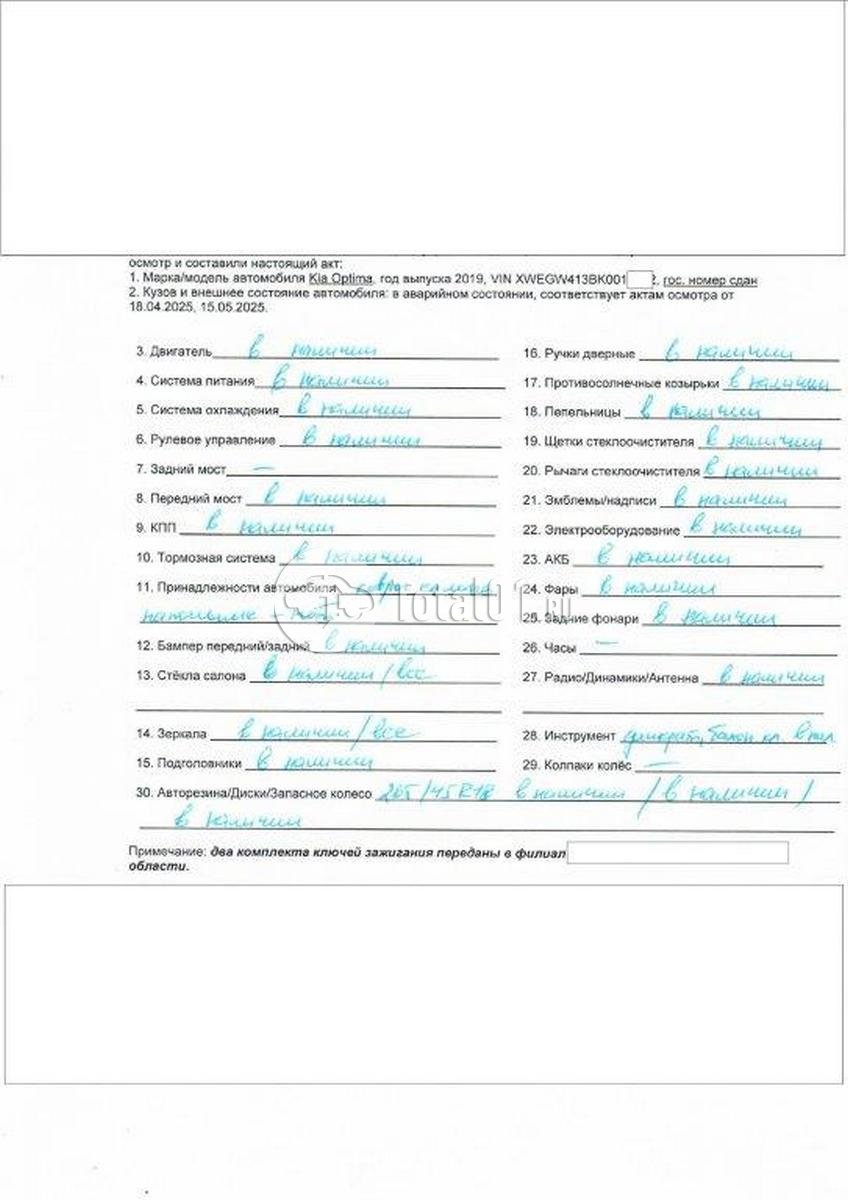 осмотр и составили настоящий акт:
1. Марка/модель автомобиля Kia Optima, год выпуска 2019, VIN XWEGW413BK001 2, гос. номер сдан
2. Кузов и внешнее состояние автомобиля: в аварийном состоянии, соответствует актам осмотра от
18.04.2025, 15.05.2025.
3. Двигатель в наличии
4. Система питания в наличии
5. Система охлаждения в наличии
6. Рулевое управление в наличии
7. Задний мост —
8. Передний мост в наличии
9. КПП в наличии
10. Тормозная система в наличии
11. Принадлежности автомобиля
12. Бампер передний/задний в наличии
13. Стёкла салона в наличии / все
14. Зеркала в наличии / все
15. Подголовники в наличии
16. Ручки дверные в наличии
17. Противосолнечные козырьки в наличии
18. Пепельницы в наличии
19. Щетки стеклоочистителя в наличии
20. Рычаги стеклоочистителя в наличии
21. Эмблемы/надписи в наличии
22. Электрооборудование в наличии
23. АКБ в наличии
24. Фары в наличии
25. Задние фонари в наличии
26. Часы —
27. Радио/Динамики/Антенна в наличии
28. Инструмент домкрат, балон кл. в нал.
29. Колпаки колёс —
30. Авторезина/Диски/Запасное колесо /45 R18 в наличии / в наличии /
в наличии
Примечание: два комплекта ключей зажигания переданы в филиал
области.
Total01.ru